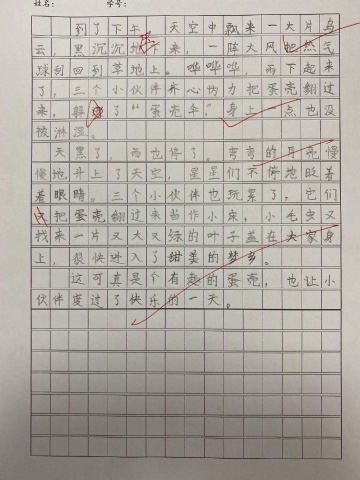 姓名： 学号：
到了下午，天空中飘来一大片乌
云，黑沉沉地压下来，一阵大风把热气
球刮回到草地上。哗哗哗，雨下起来
了，三个小伙伴齐心协力把蛋壳翻过
来，躲进了“蛋壳伞”，身上一点也没
被淋湿。
天黑了，雨也停了。弯弯的月亮慢
慢地升上了天空，星星们不停地眨着
着眼睛。三个小伙伴也玩累了，它们
只把蛋壳翻过来当作小床，小毛虫又
找来一片又大又绿的叶子盖在大家身
上，很快进入了甜美的梦乡。
这可真是个有趣的蛋壳，也让小
伙伴度过了快乐的一天。